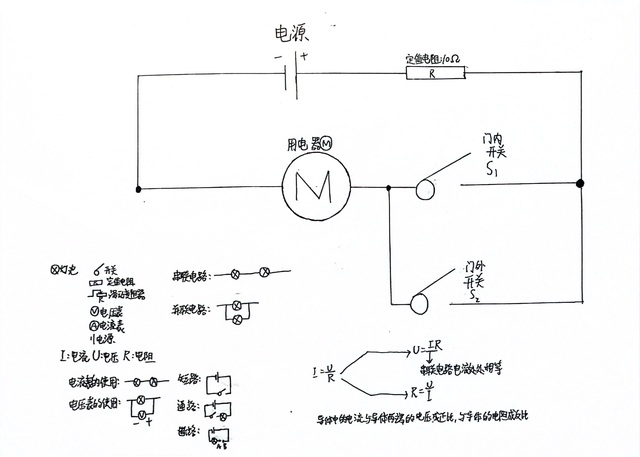 电源
- +
定值电阻:10Ω
R
用电器Ⓜ
M
门内
开关
S₁
门外
开关
S₂
灯泡
开关
定值电阻
滑动变阻器
Ⓥ电压表
Ⓐ电流表
电源
I:电流 U:电压 R:电阻
串联电路:
并联电路:
电流表的使用:
电压表的使用:
V
- +
短路:
通路:
断路:
I=U/R
U=IR
串联电路电流处处相等
R=U/I
导体中的电流,与导体两端的电压成正比,与导体的电阻成反比